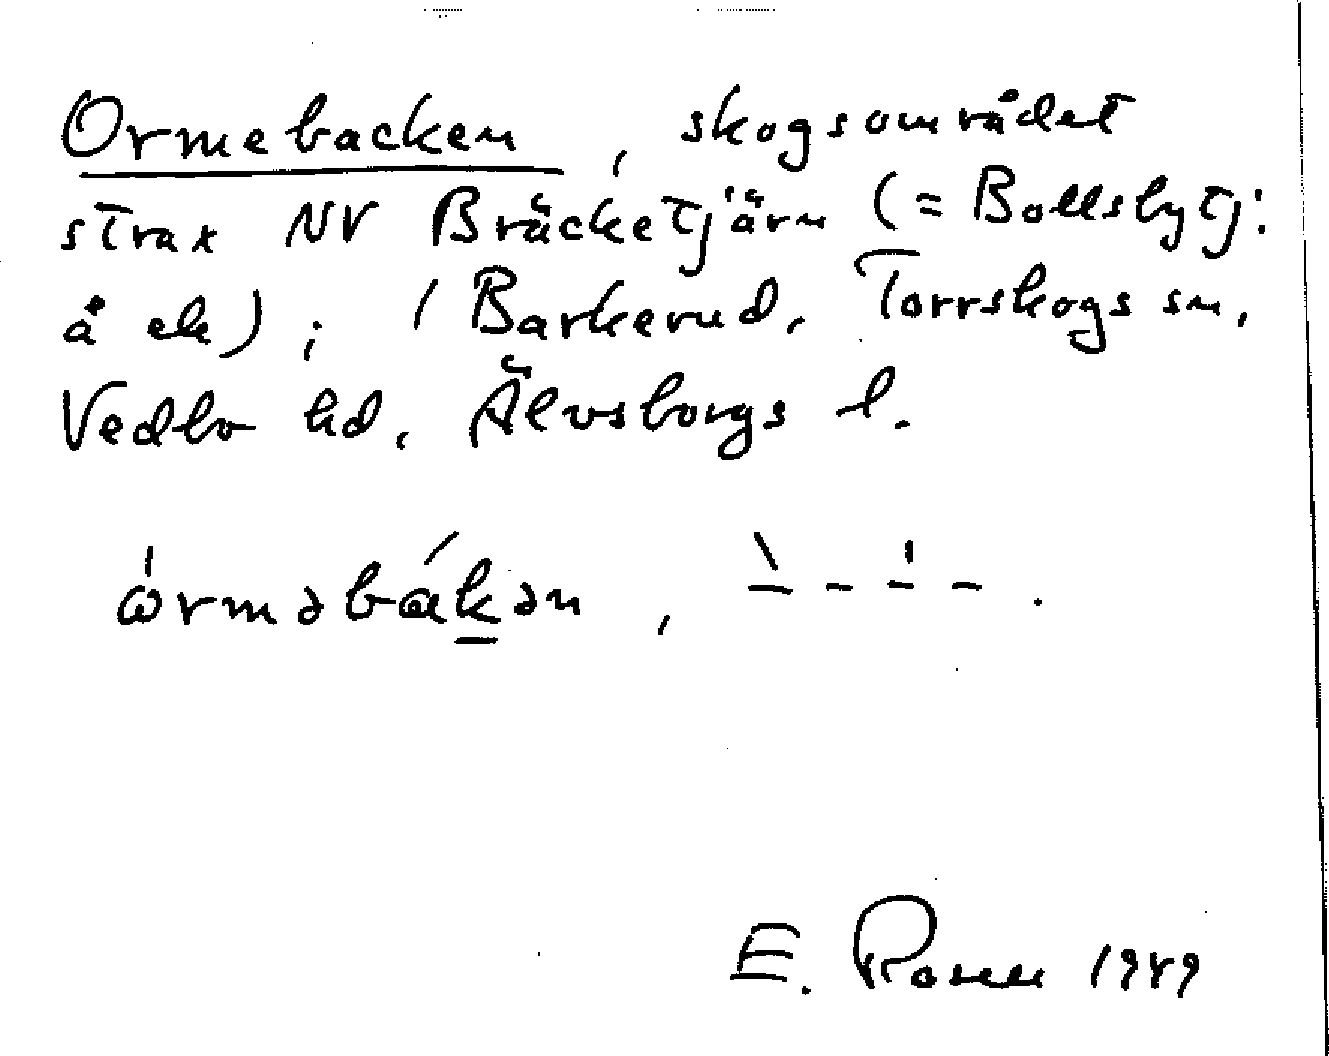 Ormebacken, skogsområdet
strax NV Bräcketjärn (= Bollsbytj:
å ek); i Barkerud, Torrskogs sn,
Vedbo hd, Älvsborgs l.
E. 1949